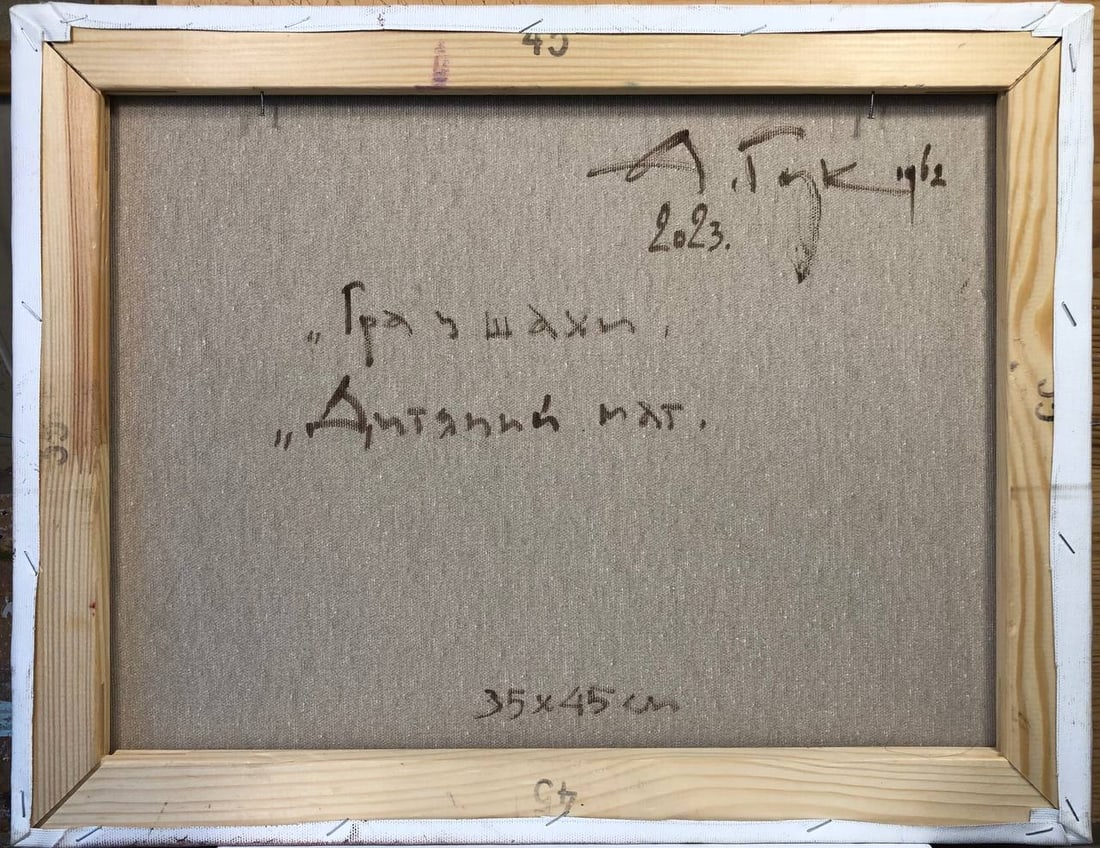 45
А. Гук 1962
2023.
„Гра у шахи.
„Дитячий мат.
35
35
35x45 см
45